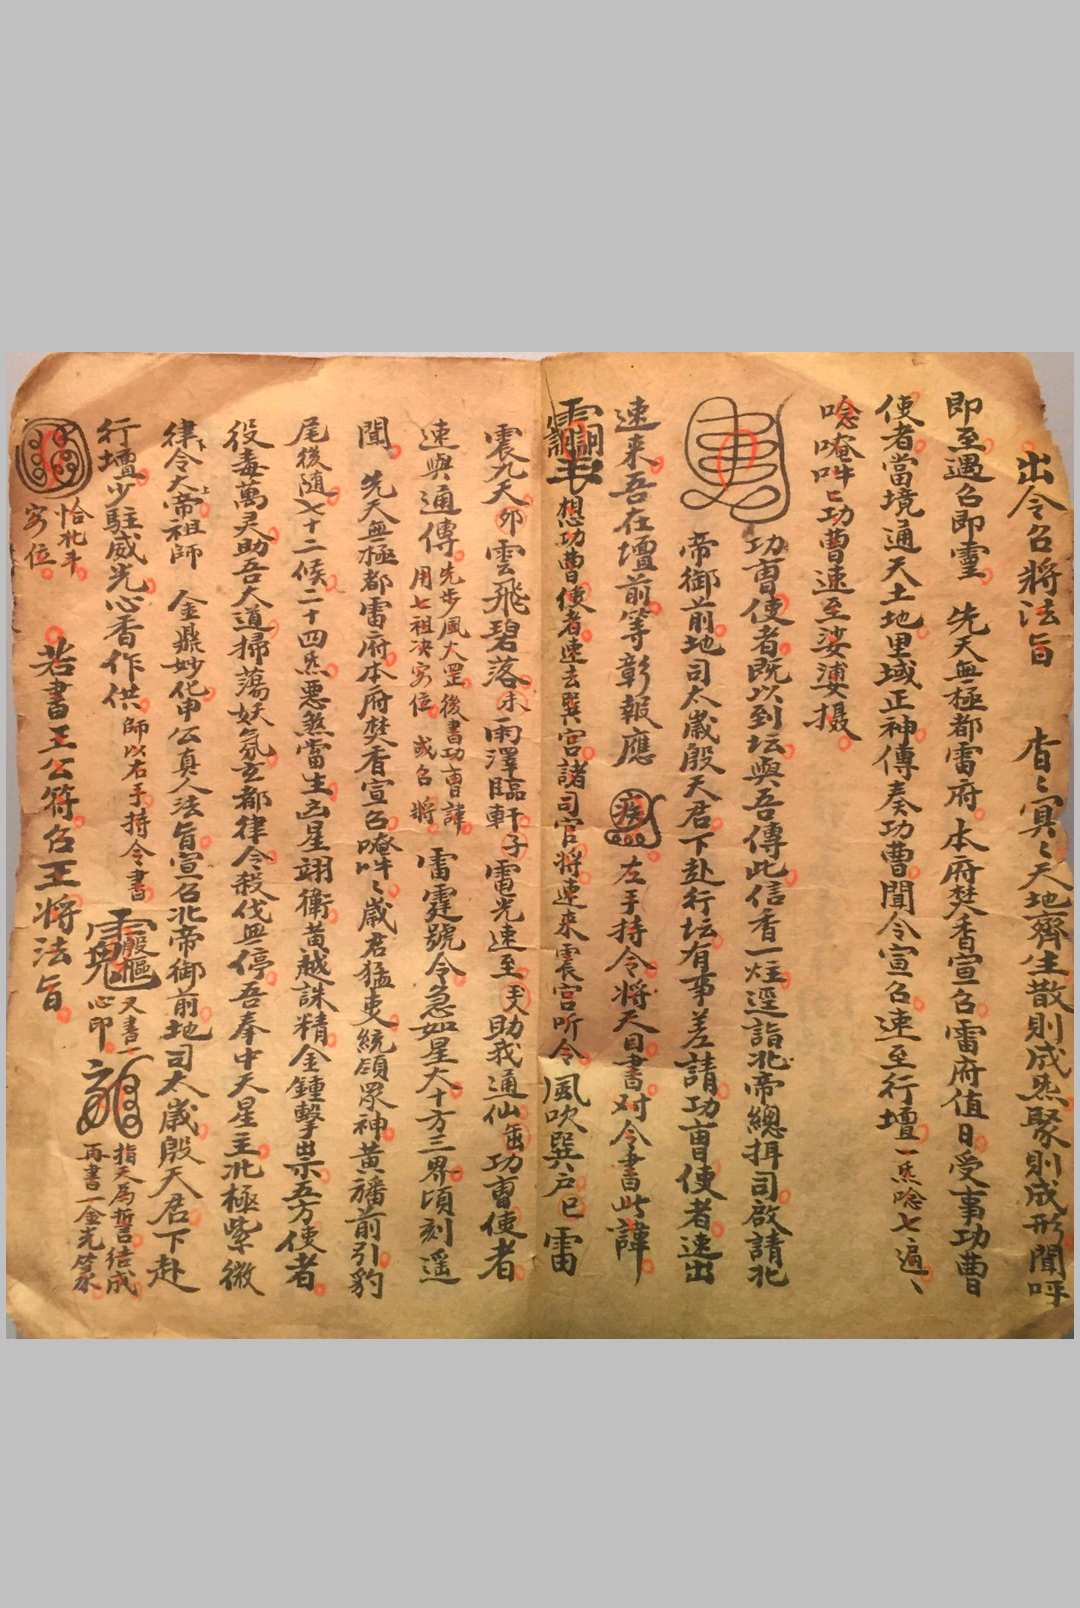 出令召將法旨 杳〻冥〻天地齊生散則成炁聚則成形聞呼
即至遇召即靈 先天無極都雷府本府焚香宣召雷府值日受事功曹
使者當境通天土地里域正神傳奏功曹聞令宣召速至行壇一炁唸七遍、
唸唵吽〻功曹速至娑婆摄
功曹使者既以到坛與吾傳此信香一炷逕詣北帝總揖司啟請北
帝御前地司太歲殷天君下赴行坛有事差請功曹使者速出
速來吾在壇前等彰報應 左手持令将天目書对令書此諱
想功曹使者速去巽宫諸司官将速來震宫听令風吹巽户巳雷
震九天卯雲飛碧落未雨澤臨軒子電光速至助我通仙功曹使者
速與通傳先步風火罡後書功曹諱用七祖决穷位或召將雷霆號令急如星火十方三界頃刻遥
聞 先天無極都雷府本府焚香宣召唵吽〻歲君猛吏統領眾神黃旛前引豹
尾後随七十二候二十四炁悪煞雷生凶星翊衛黃越誅精金鍾擊祟五方使者
役毒萬灵助吾大道掃蕩妖氛玄都律令殺伐無停吾奉中天星主北極紫微
律令大帝祖師 金鼎妙化申公真人法旨宣召北帝御前地司太歲殷天君下赴
行壇少駐威光心香作供師以右手持令書 又書一心印 指天為誓结成再書一金光笭水
恰北斗穷位 若書王公符召王將法旨